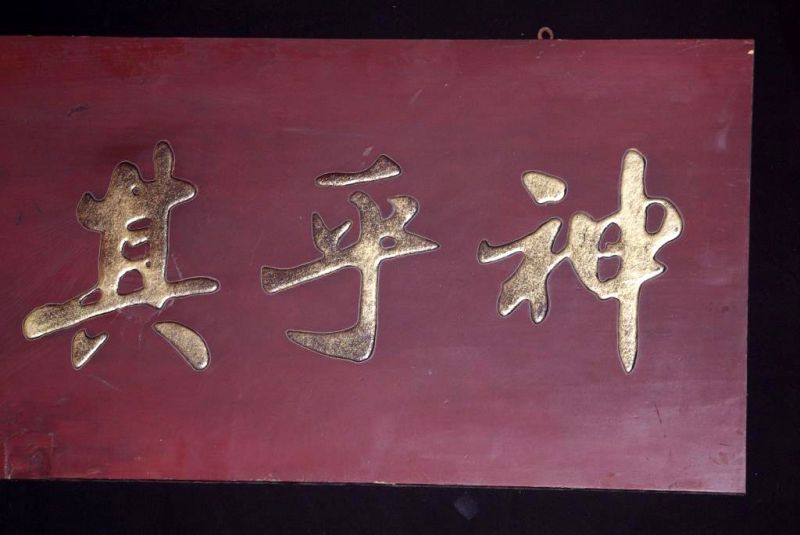 神乎其